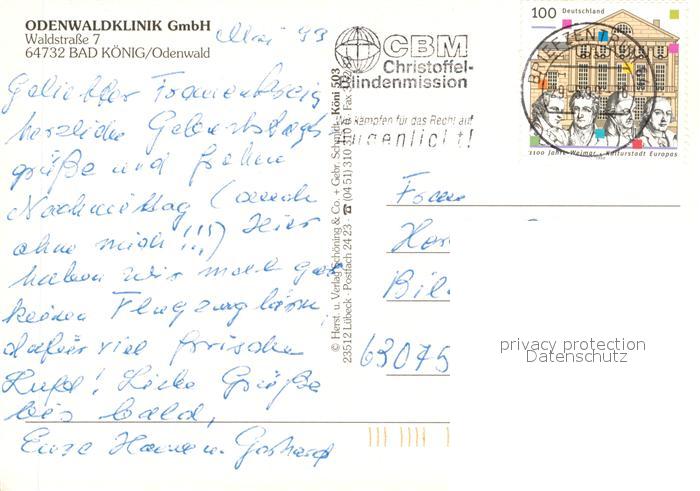 ODENWALDKLINIK GmbH
Waldstraße 7
64732 BAD KÖNIG/Odenwald
Mai 99
herzliche Geburtstags
grüße und frohen
Nachmittag (auch
ohne mich!!!) Hier
haben wir noch gar
keinen Flugzeuglärm,
dafür viel frische
Luft! Liebe Grüße
bis bald,
Eure u. Gerhard
© Herst. u. Verlag Schöning & Co. + Gebr. Schmidt
23512 Lübeck · Postfach 24 23 · ☎ (04 51) 310 310
Köni 503
CBM
Christoffel-
Blindenmission
Wir kämpfen für das Recht auf
Augenlicht!
100 Deutschland
BRIEFZENTRUM
1100 Jahre Weimar · Kulturstadt Europas
Frau
Her
Bil
63075
privacy protection
Datenschutz